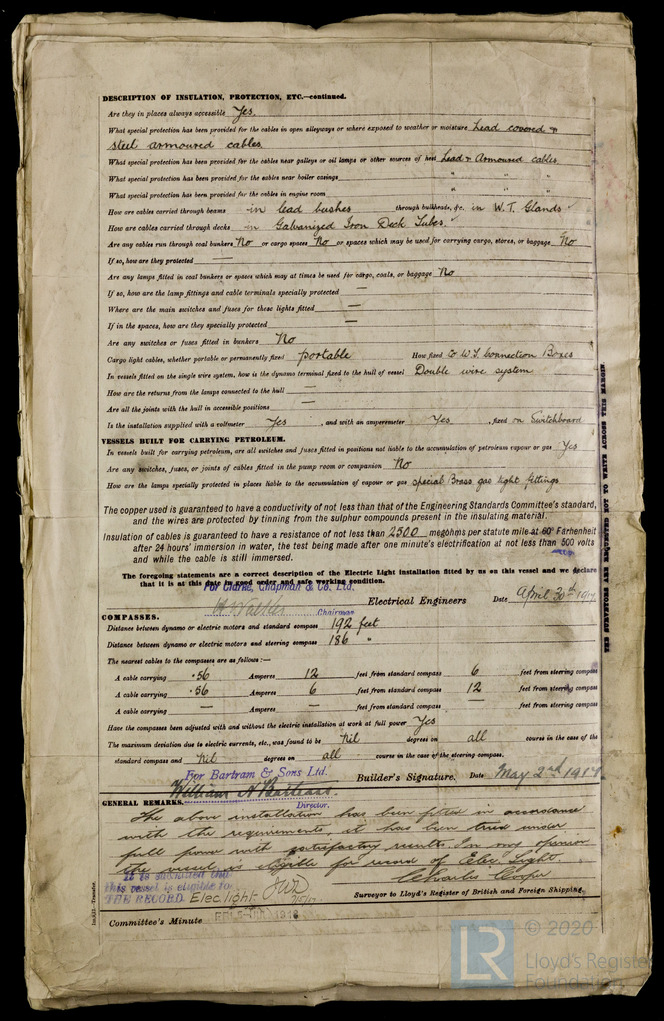 DESCRIPTION OF INSULATION, PROTECTION, ETC.—continued.
Are they in places always accessible Yes.
What special protection has been provided for the cables in open alleyways or where exposed to weather or moisture Lead covered &
steel armoured cables.
What special protection has been provided for the cables near galleys or oil lamps or other sources of heat Lead & Armoured cables.
What special protection has been provided for the cables near boiler casings " " "
What special protection has been provided for the cables in engine room " " "
How are cables carried through beams in lead bushes through bulkheads, &c. in W.T. Glands ✓
How are cables carried through decks in Galvanized Iron Deck Tubes. ✓
Are any cables run through coal bunkers No or cargo spaces No or spaces which may be used for carrying cargo, stores, or baggage No
If so, how are they protected —
Are any lamps fitted in coal bunkers or spaces which may at times be used for cargo, coals, or baggage No
If so, how are the lamp fittings and cable terminals specially protected —
Where are the main switches and fuses for these lights fitted —
If in the spaces, how are they specially protected —
Are any switches or fuses fitted in bunkers No
Cargo light cables, whether portable or permanently fixed portable How fixed to W.T. Connection Boxes
In vessels fitted on the single wire system, how is the dynamo terminal fixed to the hull of vessel Double wire system
How are the returns from the lamps connected to the hull —
Are all the joints with the hull in accessible positions —
Is the installation supplied with a voltmeter Yes , and with an amperemeter Yes , fixed on Switchboard
VESSELS BUILT FOR CARRYING PETROLEUM.
In vessels built for carrying petroleum, are all switches and fuses fitted in positions not liable to the accumulation of petroleum vapour or gas Yes
Are any switches, fuses, or joints of cables fitted in the pump room or companion No
How are the lamps specially protected in places liable to the accumulation of vapour or gas special Brass gas tight fittings
The copper used is guaranteed to have a conductivity of not less than that of the Engineering Standards Committee's standard,
and the wires are protected by tinning from the sulphur compounds present in the insulating material.
Insulation of cables is guaranteed to have a resistance of not less than 2500 megohms per statute mile at 60° Fahrenheit
after 24 hours' immersion in water, the test being made after one minute's electrification at not less than 500 volts
and while the cable is still immersed.
The foregoing statements are a correct description of the Electric Light installation fitted by us on this vessel and we declare
that it is at this date in good order and safe working condition.
For Clarke, Chapman & Co. Ltd.
Chairman Electrical Engineers Date April 30th 1917
COMPASSES.
Distance between dynamo or electric motors and standard compass 192 feet
Distance between dynamo or electric motors and steering compass 186 "
The nearest cables to the compasses are as follows:—
A cable carrying .56 Amperes 12 feet from standard compass 6 feet from steering compass
A cable carrying .56 Amperes 6 feet from standard compass 12 feet from steering compass
A cable carrying — Amperes — feet from standard compass — feet from steering compass
Have the compasses been adjusted with and without the electric installation at work at full power Yes
The maximum deviation due to electric currents, etc., was found to be nil degrees on all course in the case of the
standard compass and nil degrees on all course in the case of the steering compass.
For Bartram & Sons Ltd.
William H Bartram. Builder's Signature. Date May 2nd 1917
Director.
GENERAL REMARKS.
The above installation has been fitted in accordance
with the requirements, it has been tried under
full power with satisfactory results. In my opinion
the vessel is eligible for record of Elec. Light.
It is submitted that
this vessel is eligible to
THE RECORD. Elec. light. JWD
Charles Cooper
Surveyor to Lloyd's Register of British and Foreign Shipping.
Committee's Minute
THE SURVEYORS ARE REQUESTED NOT TO WRITE ACROSS THIS MARGIN.
LR
© 2020
Lloyd's Register
Foundation